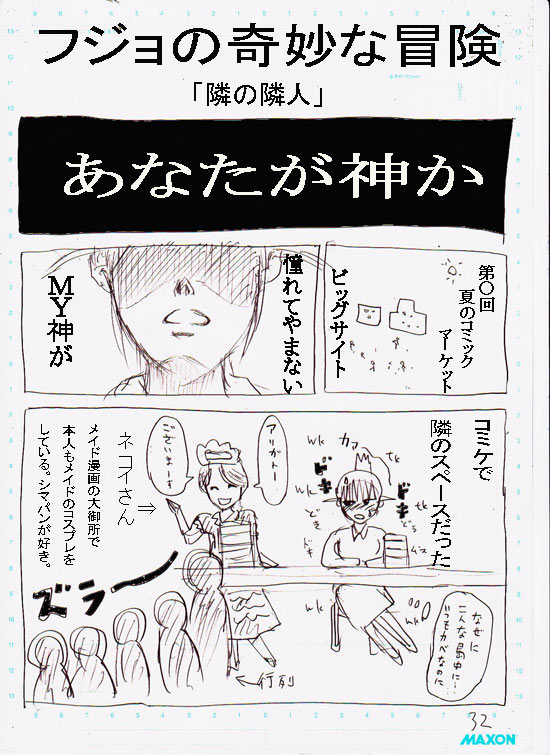 フジョの奇妙な冒険
「隣の隣人」
あなたが神か
第〇回
夏のコミック
マーケット
ビッグサイト
憧れてやまない
MY神が
コミケで
隣のスペースだった
アリガトー
ございまーす
ネコイさん
⇒
メイド漫画の大御所で
本人もメイドのコスプレを
している。シマパンが好き。
ズラー
カァ
wk
tk
wk
ドキ
ドキ
どき
ドキ
wk
tk
wk
wk
なぜに
こんな島中に…
いつもカベなのに…
←行列
32
MAXON